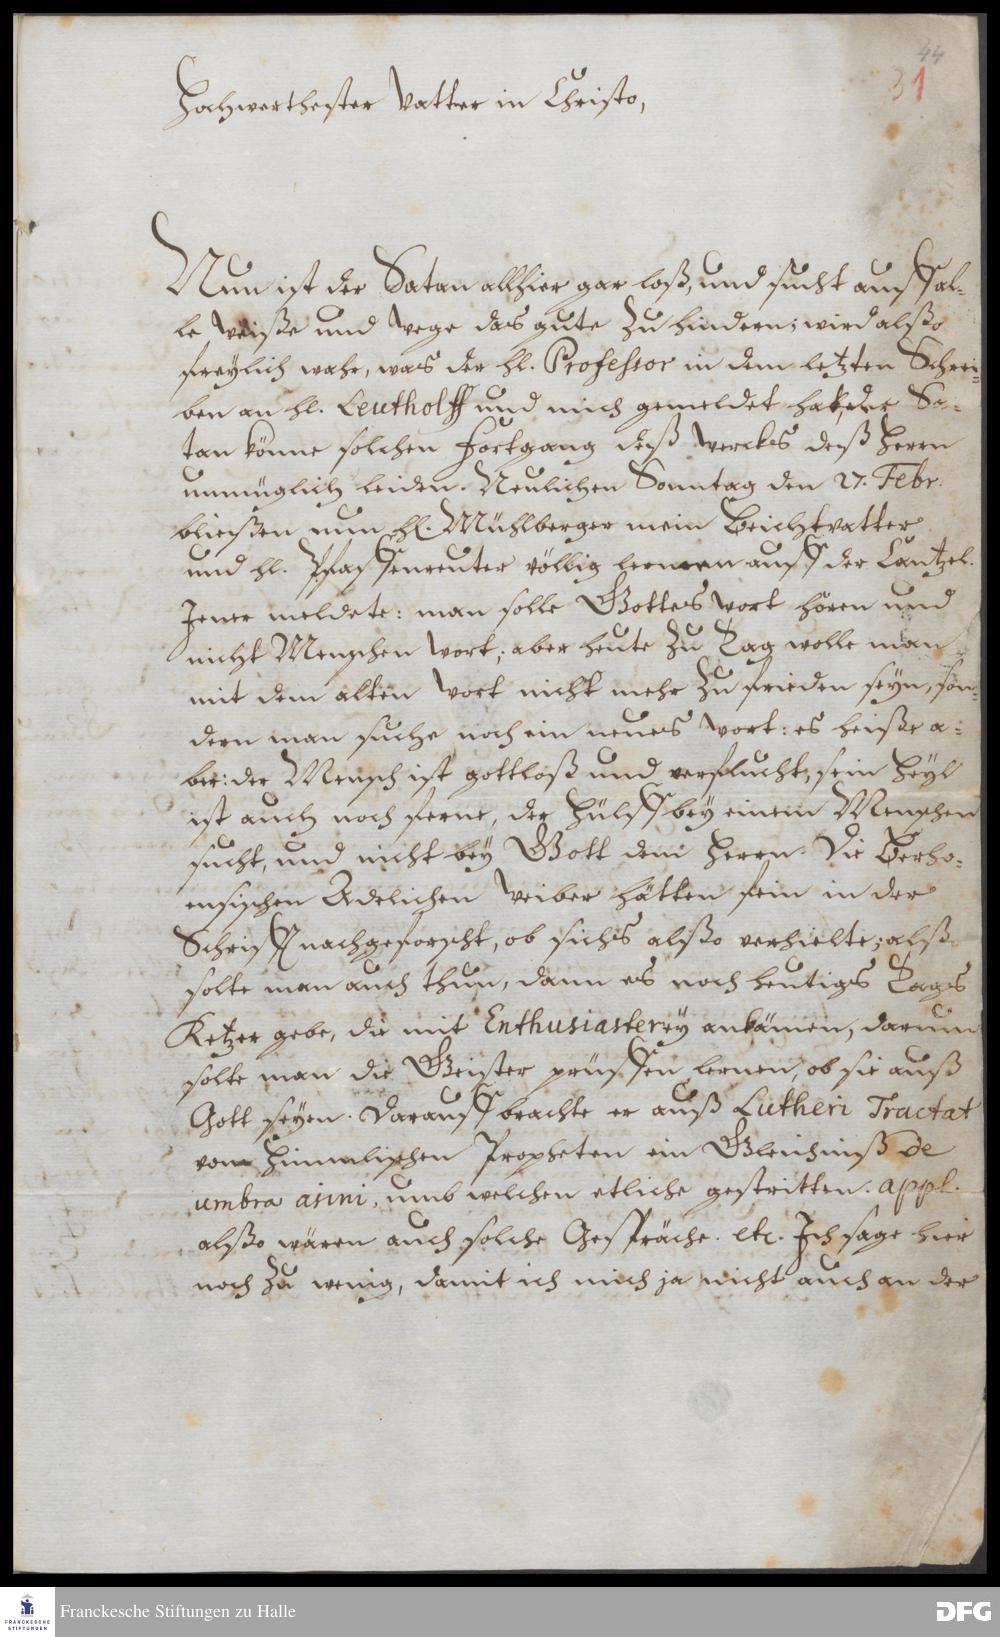 44
31
Hochwerthester Vatter in Christo,
Nun ist der Satan allhier gar loß, und sucht auff al-
le Weiße und Wege das gute zu hindern; wird alßo
freylich wahr, was der hl. Professor in dem letzten Schrei-
ben an hl. Leutholff und mich gemeldet hat, der Sa-
tan könne solchen Fortgang deß Wercks deß Herrn
unmüglich leiden. Neulichen Sonntag den 27. Febr.
bließen nun hl. Mühlberger mein Beichtvatter
und hl. Pfaffenreuter völlig lermen auff der Cantzel.
Jener meldete: man solle Gottes Wort hören und
nicht Menschen Wort; aber heute zu Tag wolle man
mit dem alten Wort nicht mehr zu frieden seyn, son-
dern man suche noch ein neues Wort: es heiße a-
ber: der Mensch ist gottloß und verflucht, sein Heyl
ist auch noch ferne, der Hülff bey einem Menschen
sucht, und nicht bey Gott dem Herrn. Die Berho-
ensischen Adelichen Weiber hätten fein in der
Schrifft nachgeforscht, ob sichs alßo verhielte; alßo
solte man auch thun, dann es noch heutigs Tags
Ketzer gebe, die mit Enthusiasterey ankämen, darum
solte man die Geister prüffen lernen, ob sie auß
Gott seyen. Darauff brachte er auß Lutheri Tractat
vom Himmlischen Propheten ein Gleichniß de
umbra asini, umb welchen etliche gestritten. appl.
alßo wären auch solche Gespräche. etc. Ich sage hier
noch zu wenig, damit ich mich ja nicht auch an der
FRANCKESCHE
STIFTUNGEN
Franckesche Stiftungen zu Halle
DFG